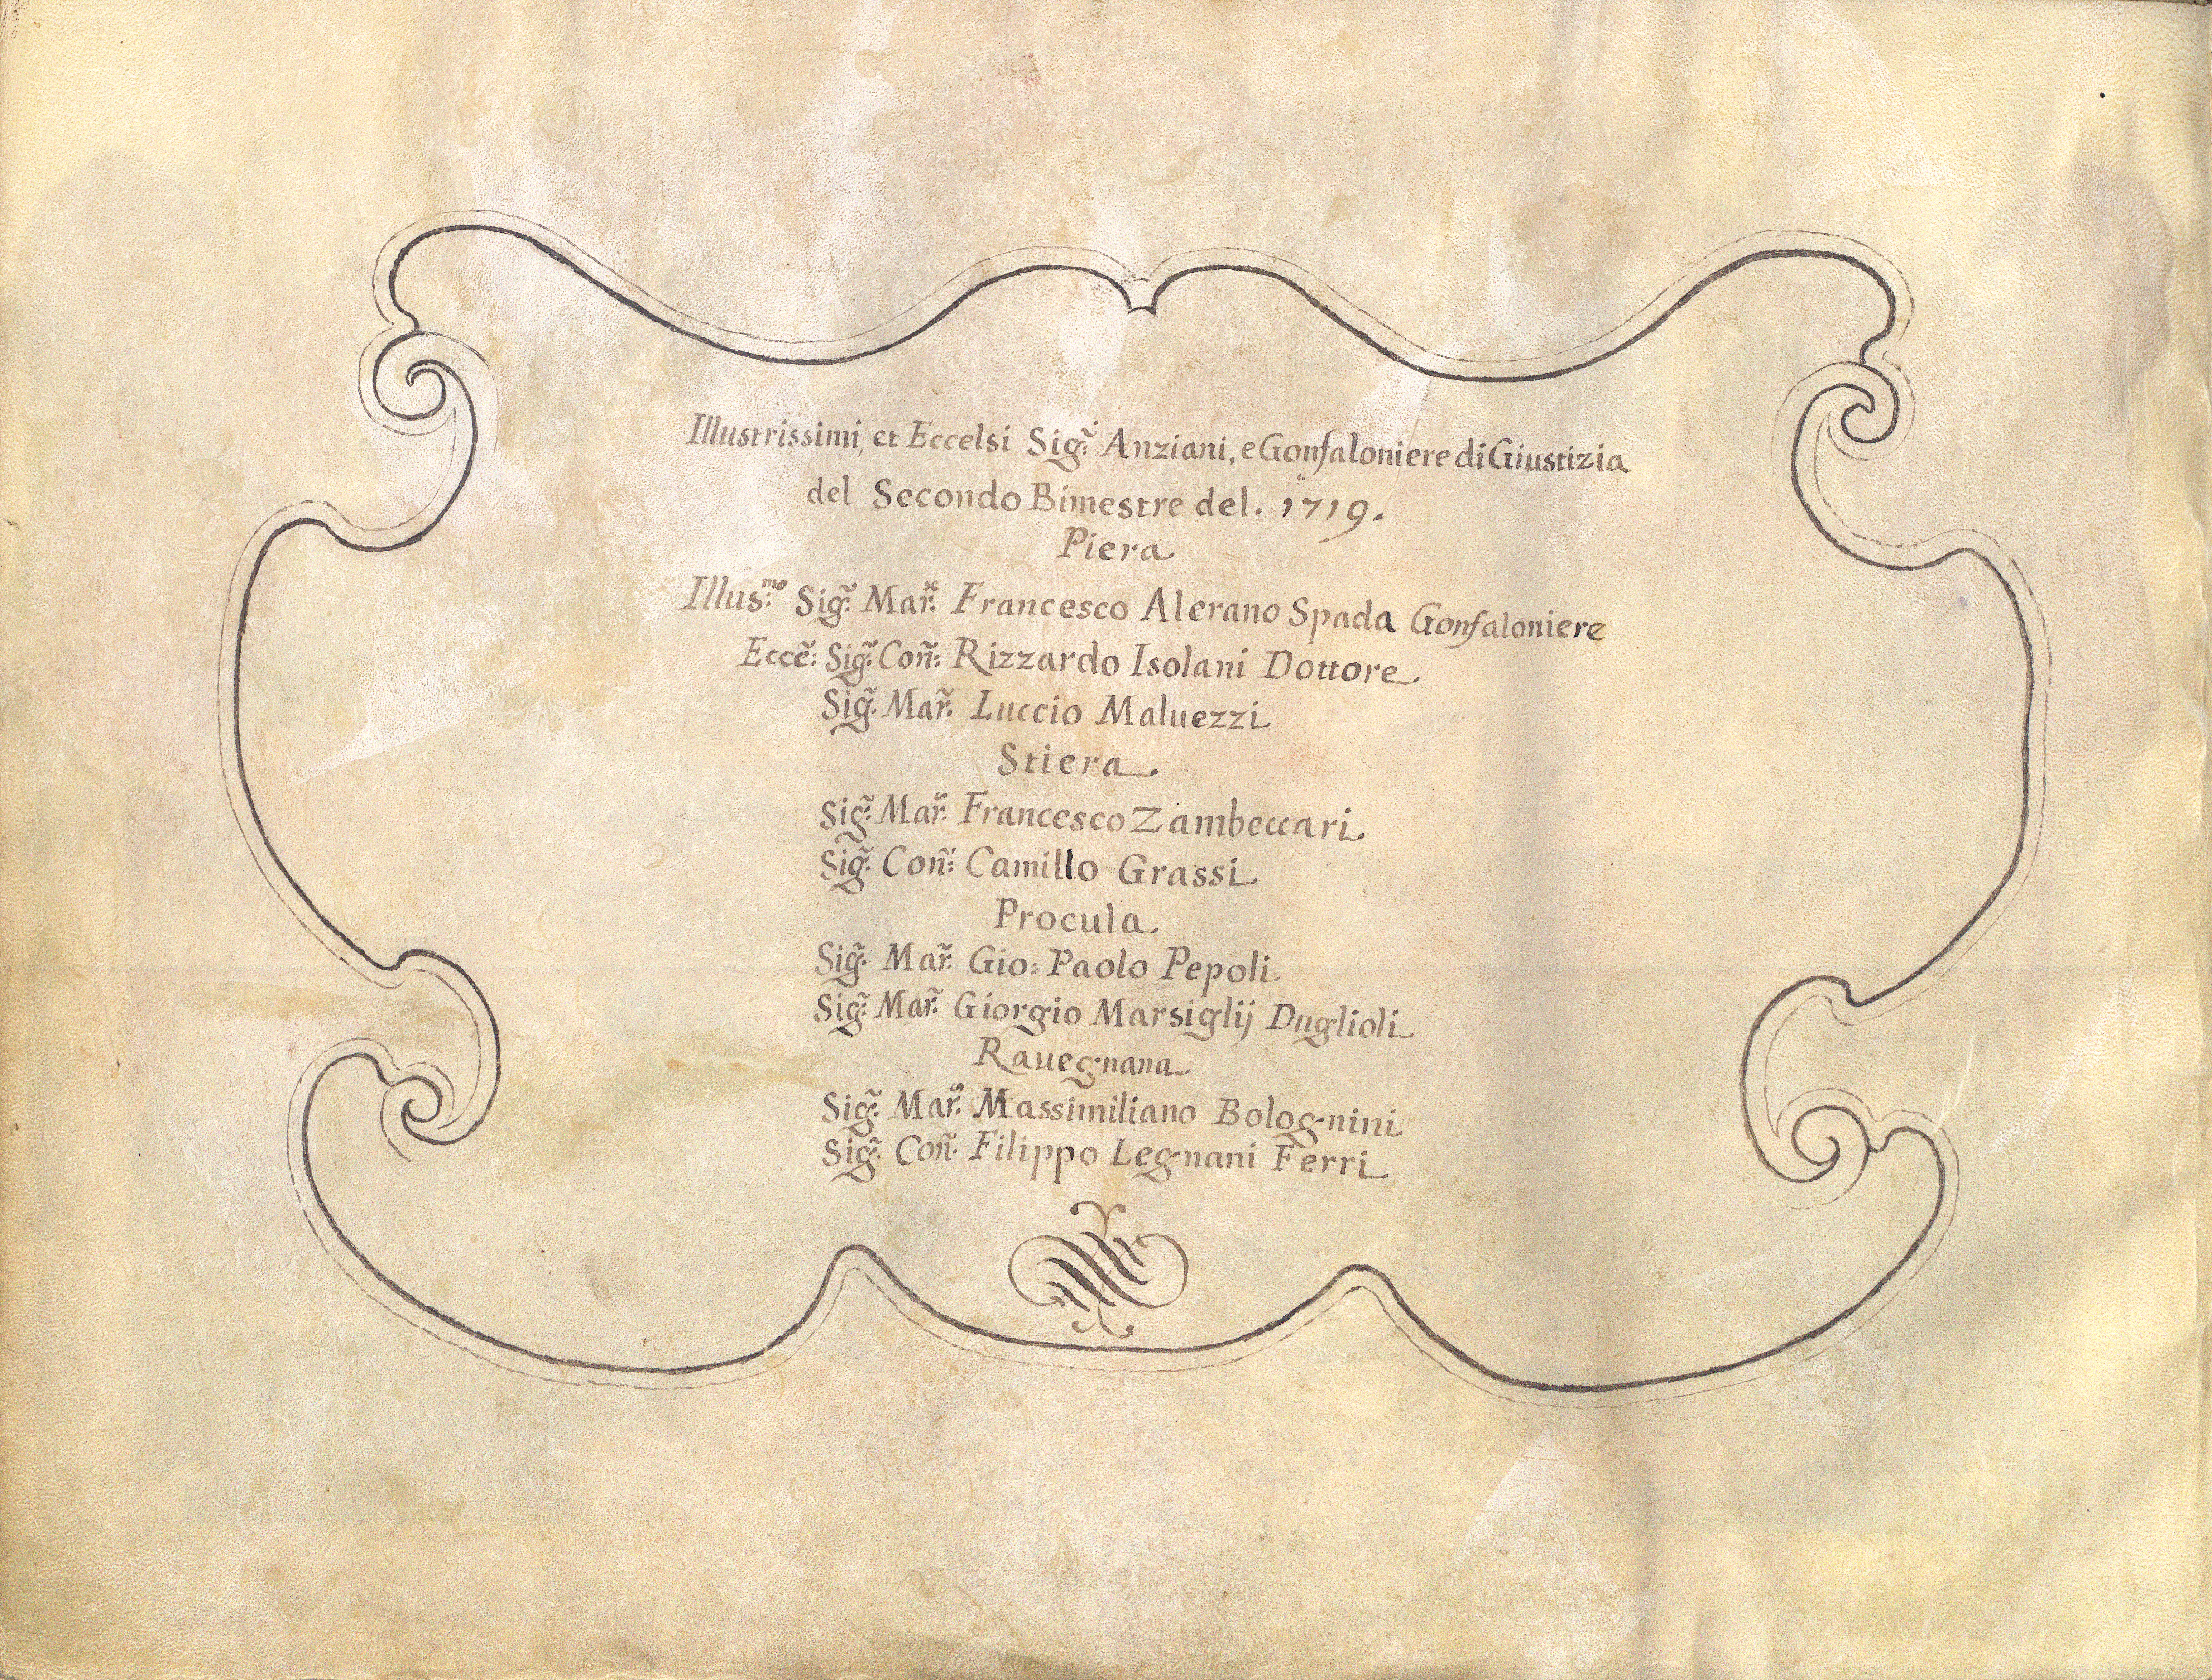 Illustrissimi, et Eccelsi Sig:ri Anziani, e Gonfaloniere di Giustizia
del Secondo Bimestre del. 1719.
Piera
Illus:mo Sig:̃ Mar:̃ Francesco Alerano Spada Gonfaloniere
Eccẽ: Sig:̃ Coñ: Rizzardo Isolani Dottore.
Sig:̃ Mar:̃ Luccio Maluezzi
Stiera.
Sig:̃ Mar:̃ Francesco Zambeccari.
Sig:̃ Coñ: Camillo Grassi
Procula.
Sig:̃ Mar:̃ Gio: Paolo Pepoli
Sig:̃ Mar:̃ Giorgio Marsiglij Duglioli
Rauegnana
Sig:̃ Mar:̃ Massimiliano Bolognini
Sig:̃ Coñ: Filippo Legnani Ferri